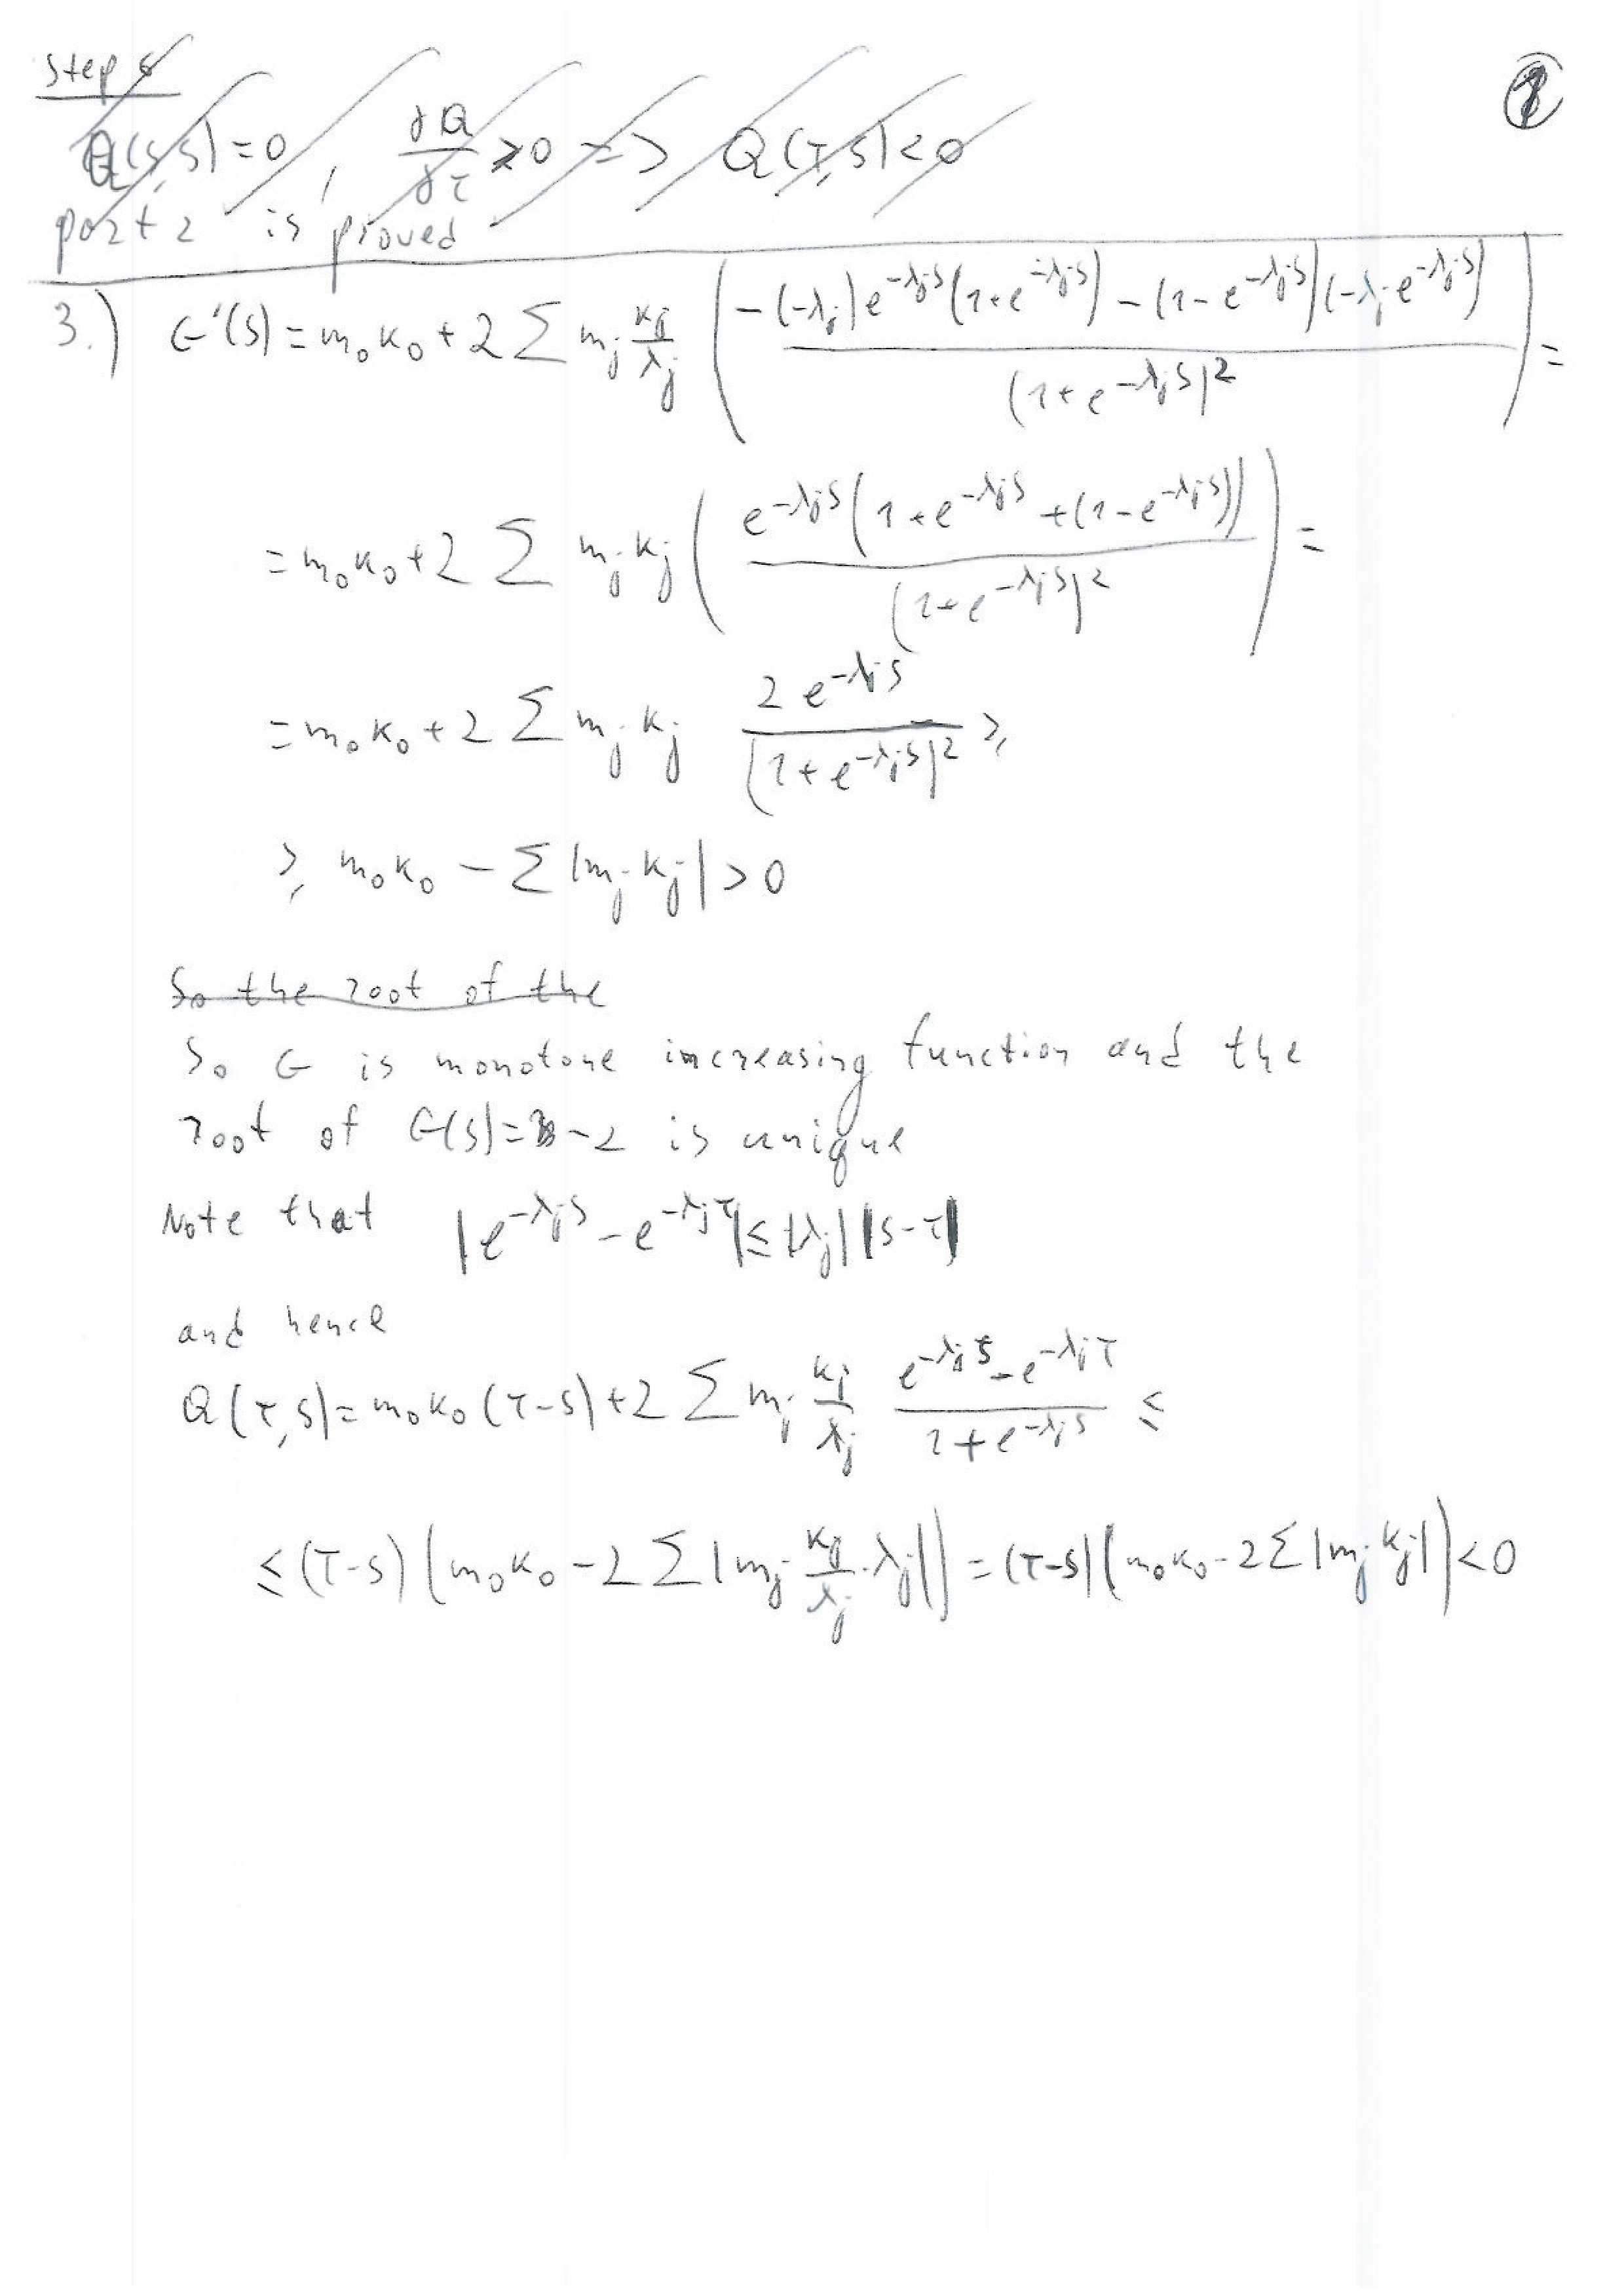 Step 6
Q(s,s)=0, ∂Q/∂τ >0 => Q(τ,s)<0
part 2 is proved
3.) G'(s) = m₀κ₀ + 2 Σ m_j κ_j/λ_j ( (-(-λ_j)e^{-λ_j s}(1+e^{-λ_j s}) - (1-e^{-λ_j s})(-λ_j e^{-λ_j s})) / (1+e^{-λ_j s})² ) =
= m₀κ₀ + 2 Σ m_j κ_j ( e^{-λ_j s}(1+e^{-λ_j s} + (1-e^{-λ_j s})) / (1+e^{-λ_j s})² ) =
= m₀κ₀ + 2 Σ m_j κ_j 2e^{-λ_j s} / (1+e^{-λ_j s})² ≥
≥ m₀κ₀ - Σ |m_j κ_j| > 0
So the root of the
So G is monotone increasing function and the
root of G(s) = -2 is unique
Note that |e^{-λ_j s} - e^{-λ_j τ}| ≤ |λ_j| |s-τ|
and hence
Q(τ,s) = m₀κ₀(τ-s) + 2 Σ m_j κ_j/λ_j (e^{-λ_j s} - e^{-λ_j τ}) / (1+e^{-λ_j s}) ≤
≤ (τ-s) (m₀κ₀ - 2 Σ |m_j κ_j/λ_j · λ_j|) = (τ-s) (m₀κ₀ - 2 Σ |m_j κ_j|) < 0